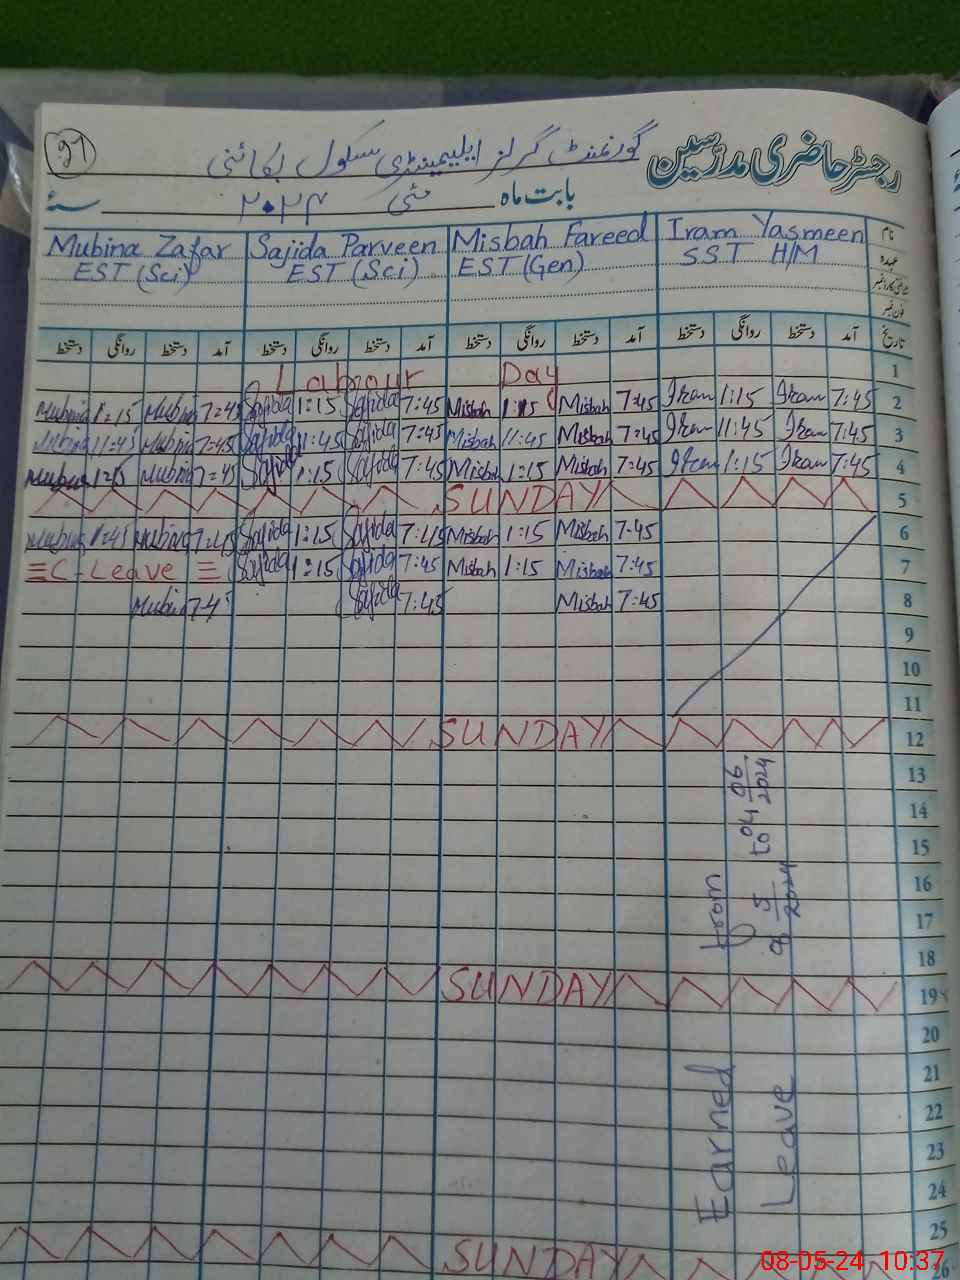 97
رجسٹر حاضری مدرسین گورنمنٹ گرلز ایلیمینٹری سکول
بابت ماہ مئی ۲۰۲۴ سنہ
نام Iram Yasmeen Misbah Fareed Sajida Parveen Mubina Zafar
عہدہ SST H/M EST (Gen) EST (Sci) EST (Sci)
فون نمبر
تاریخ آمد دستخط روانگی دستخط آمد دستخط روانگی دستخط آمد دستخط روانگی دستخط آمد دستخط روانگی دستخط
Labour Day 1
Mubina 1:15 Mubina 7:45 Sajida 1:15 Sajida 7:45 Misbah 1:15 Misbah 7:45 Iram 1:15 Iram 7:45 2
Mubina 11:45 Mubina 7:45 Sajida 11:45 Sajida 7:45 Misbah 11:45 Misbah 7:45 Iram 11:45 Iram 7:45 3
Mubina 1:15 Mubina 7:45 Sajida 1:15 Sajida 7:45 Misbah 1:15 Misbah 7:45 Iram 1:15 Iram 7:45 4
SUNDAY 5
Mubina Mubina 7:45 Sajida 1:15 Sajida 7:45 Misbah 1:15 Misbah 7:45 6
C-Leave Sajida 1:15 Sajida 7:45 Misbah 1:15 Misbah 7:45 7
Mubina 7:45 Sajida 7:45 Misbah 7:45 8
9
10
11
SUNDAY 12
13
14
15
16
17
18
SUNDAY 19
20
21
22
23
24
25
SUNDAY 26
Earned Leave
from 8 5 2024 to 04 06 2024
08-05-24 10:37